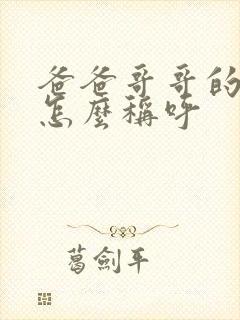 爸爸哥哥的
怎麼稱呼
葛劍平